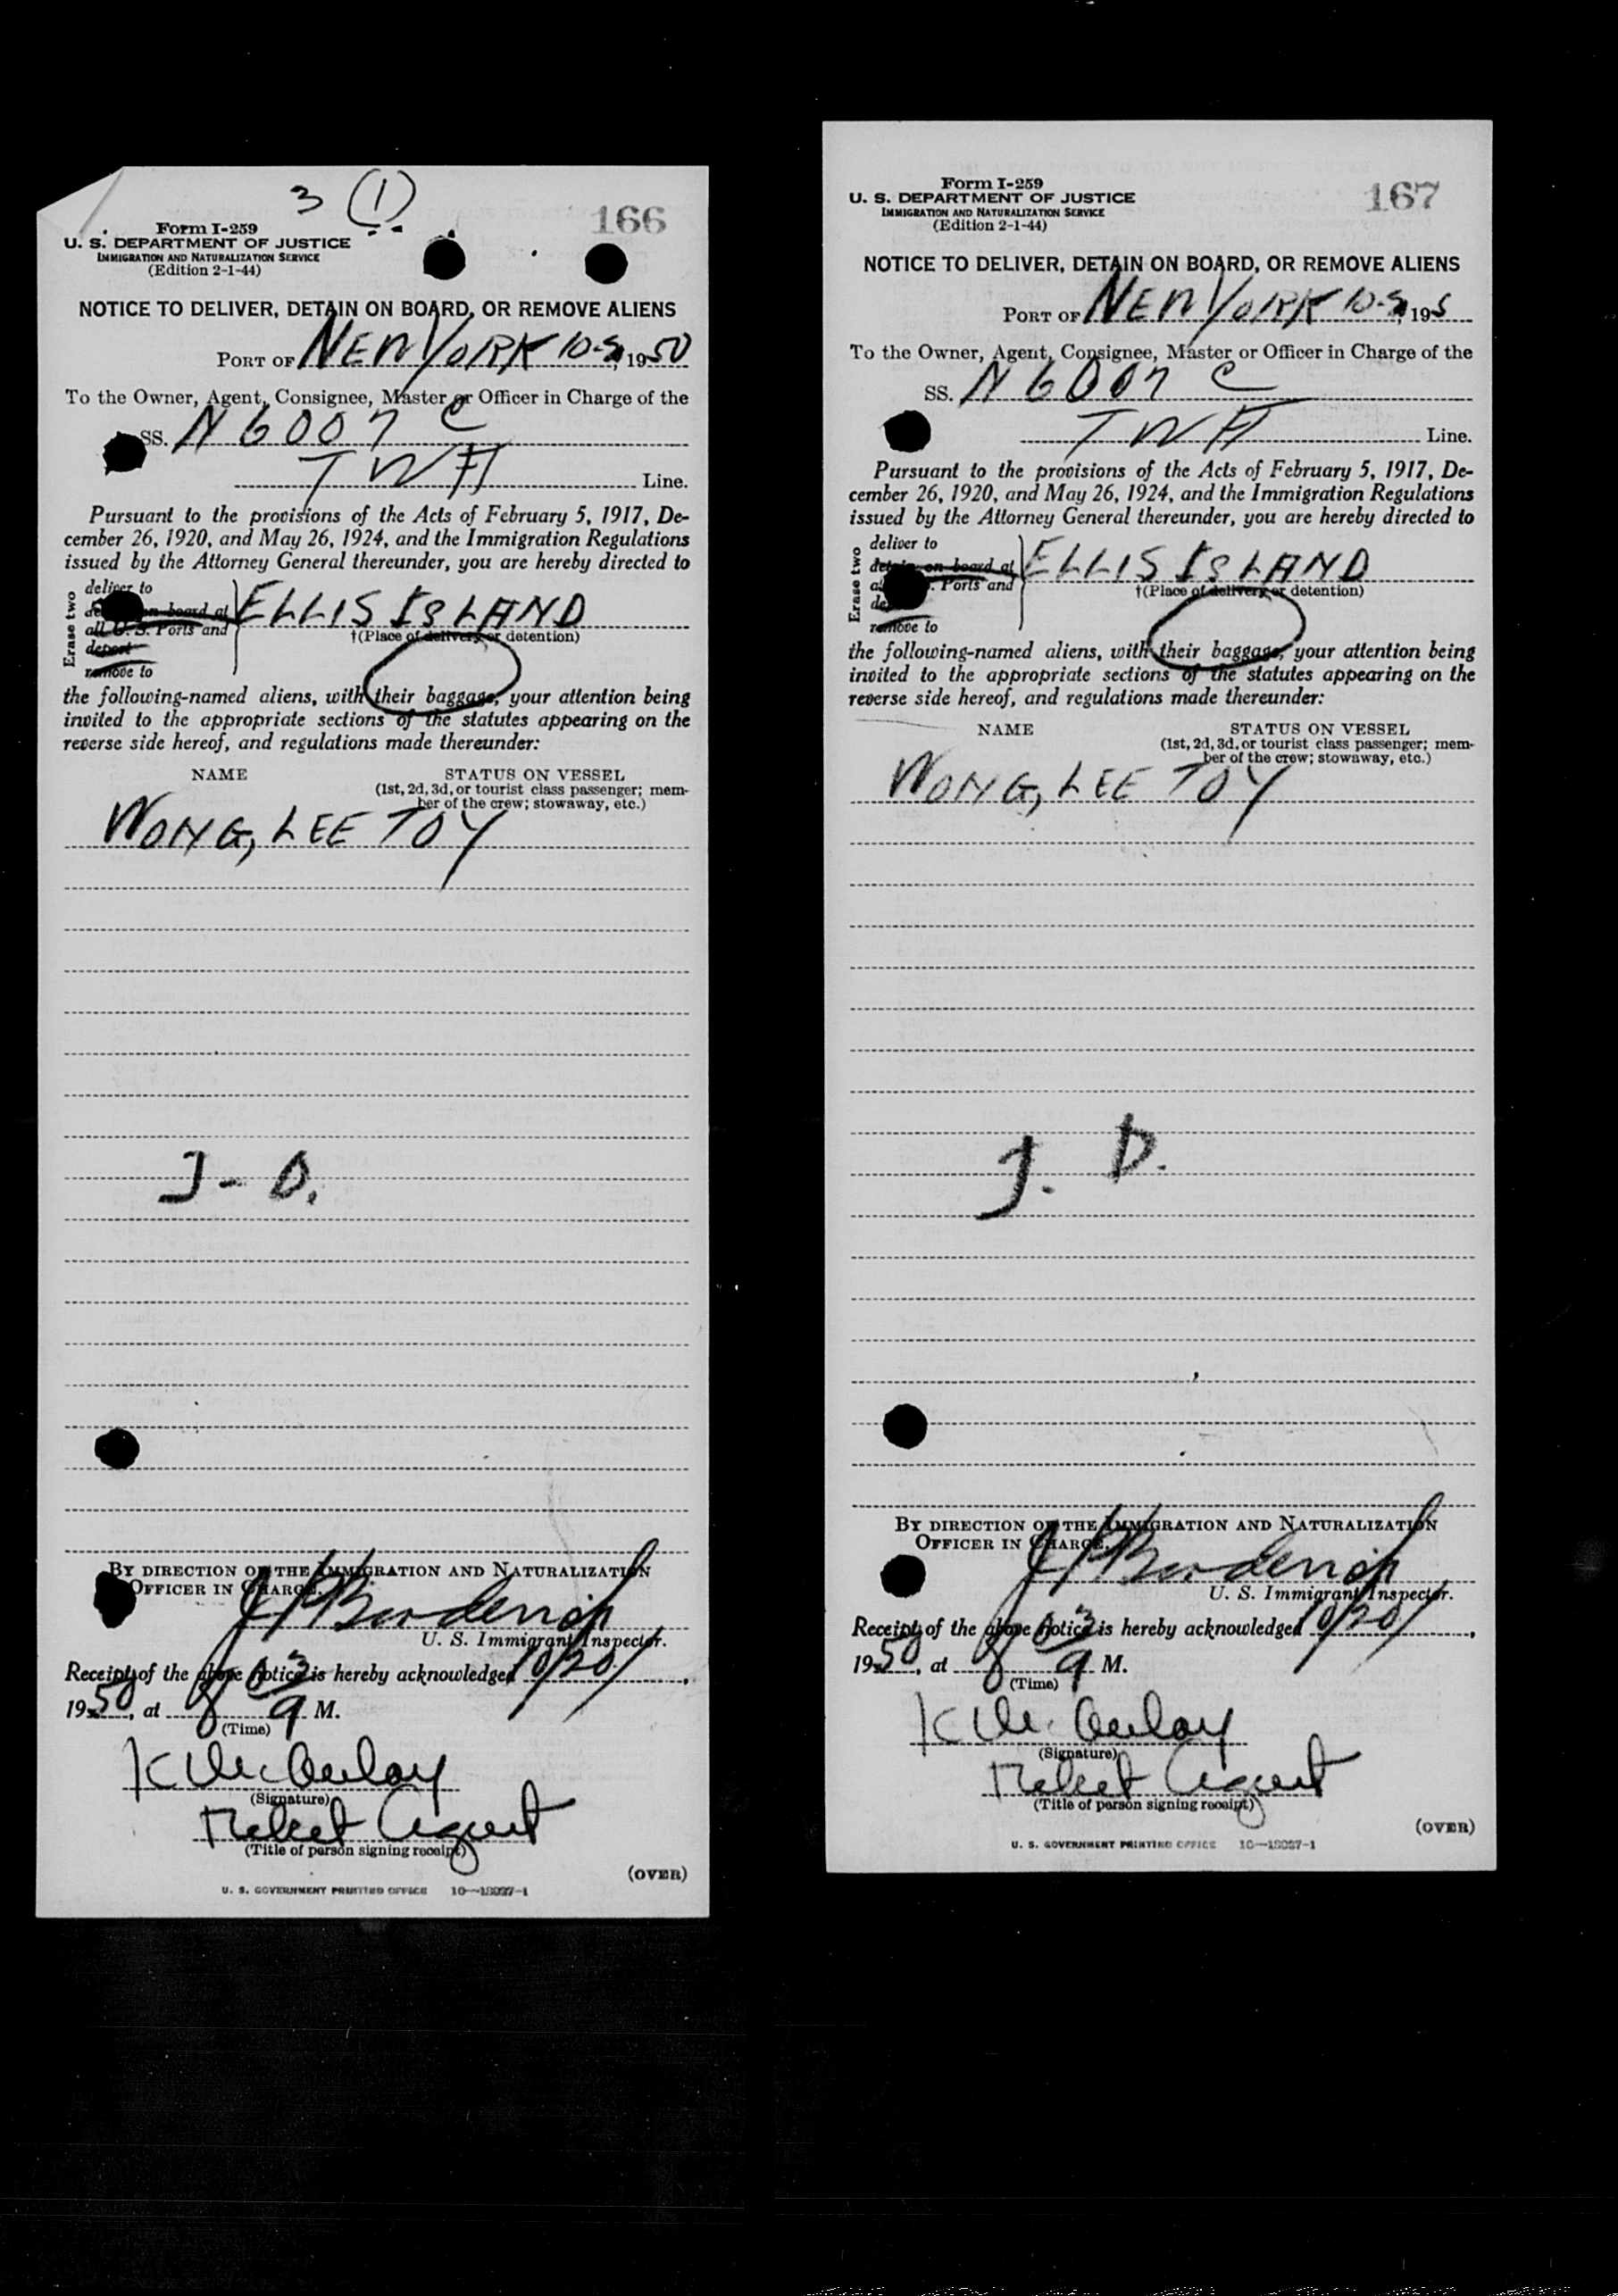 3 (1)
166
Form I-259
U. S. DEPARTMENT OF JUSTICE
IMMIGRATION AND NATURALIZATION SERVICE
(Edition 2-1-44)
NOTICE TO DELIVER, DETAIN ON BOARD, OR REMOVE ALIENS
PORT OF NEW YORK 1950
To the Owner, Agent, Consignee, Master or Officer in Charge of the
SS. N 6007 C
TWA Line.
Pursuant to the provisions of the Acts of February 5, 1917, De-
cember 26, 1920, and May 26, 1924, and the Immigration Regulations
issued by the Attorney General thereunder, you are hereby directed to
Erase two
deliver to
on board at
all U. S. Ports and
deport
remove to
ELLIS ISLAND
†(Place of delivery or detention)
the following-named aliens, with their baggage, your attention being
invited to the appropriate sections of the statutes appearing on the
reverse side hereof, and regulations made thereunder:
NAME STATUS ON VESSEL
(1st, 2d, 3d, or tourist class passenger; mem-
ber of the crew; stowaway, etc.)
WONG, LEE TOY
J - D.
BY DIRECTION OF THE IMMIGRATION AND NATURALIZATION
OFFICER IN CHARGE.
U. S. Immigrant Inspector.
Receipt of the above notice is hereby acknowledged 10/20/
1950, at M.
(Time)
(Signature)
Ticket Agent
(Title of person signing receipt)
(OVER)
U. S. GOVERNMENT PRINTING OFFICE
167
Form I-259
U. S. DEPARTMENT OF JUSTICE
IMMIGRATION AND NATURALIZATION SERVICE
(Edition 2-1-44)
NOTICE TO DELIVER, DETAIN ON BOARD, OR REMOVE ALIENS
PORT OF NEW YORK 195
To the Owner, Agent, Consignee, Master or Officer in Charge of the
SS. N 6007 C
TWA Line.
Pursuant to the provisions of the Acts of February 5, 1917, De-
cember 26, 1920, and May 26, 1924, and the Immigration Regulations
issued by the Attorney General thereunder, you are hereby directed to
Erase two
deliver to
detain on board at
Ports and
remove to
ELLIS ISLAND
†(Place of delivery or detention)
the following-named aliens, with their baggage, your attention being
invited to the appropriate sections of the statutes appearing on the
reverse side hereof, and regulations made thereunder:
NAME STATUS ON VESSEL
(1st, 2d, 3d, or tourist class passenger; mem-
ber of the crew; stowaway, etc.)
WONG, LEE TOY
J. D.
BY DIRECTION OF THE IMMIGRATION AND NATURALIZATION
OFFICER IN CHARGE.
U. S. Immigrant Inspector.
Receipt of the above notice is hereby acknowledged 10/20/
1950, at M.
(Time)
(Signature)
Ticket Agent
(Title of person signing receipt)
(OVER)
U. S. GOVERNMENT PRINTING OFFICE